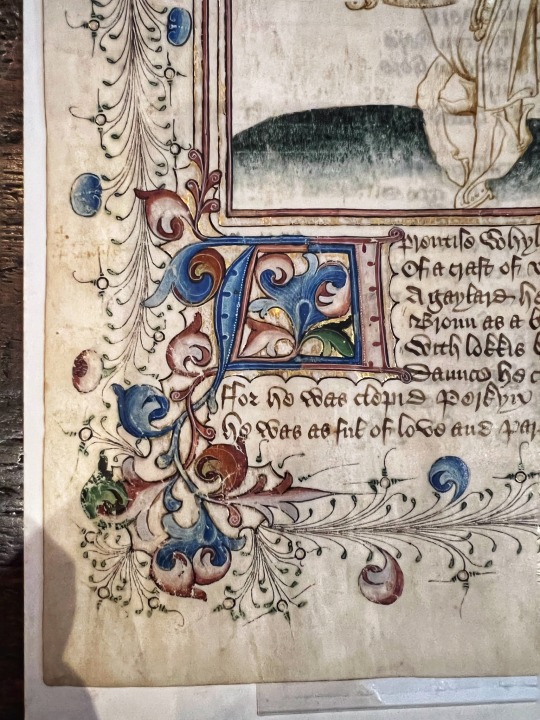 A prentise Whyl
Of a craft of v
A gaylard he
Broun as a b
With lokkis b
Daunce he c
ffor he was clepid perkyn
he was as ful of love and par